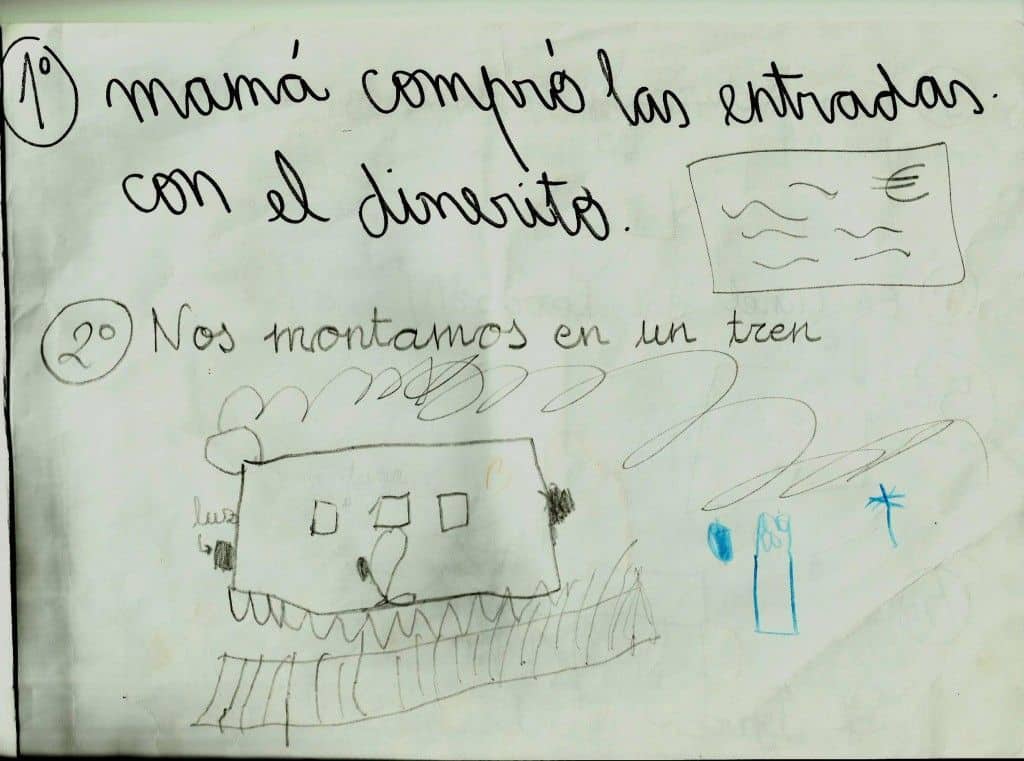 1º mamá compró las entradas.
con el dinerito.
€
2º Nos montamos en un tren
luz